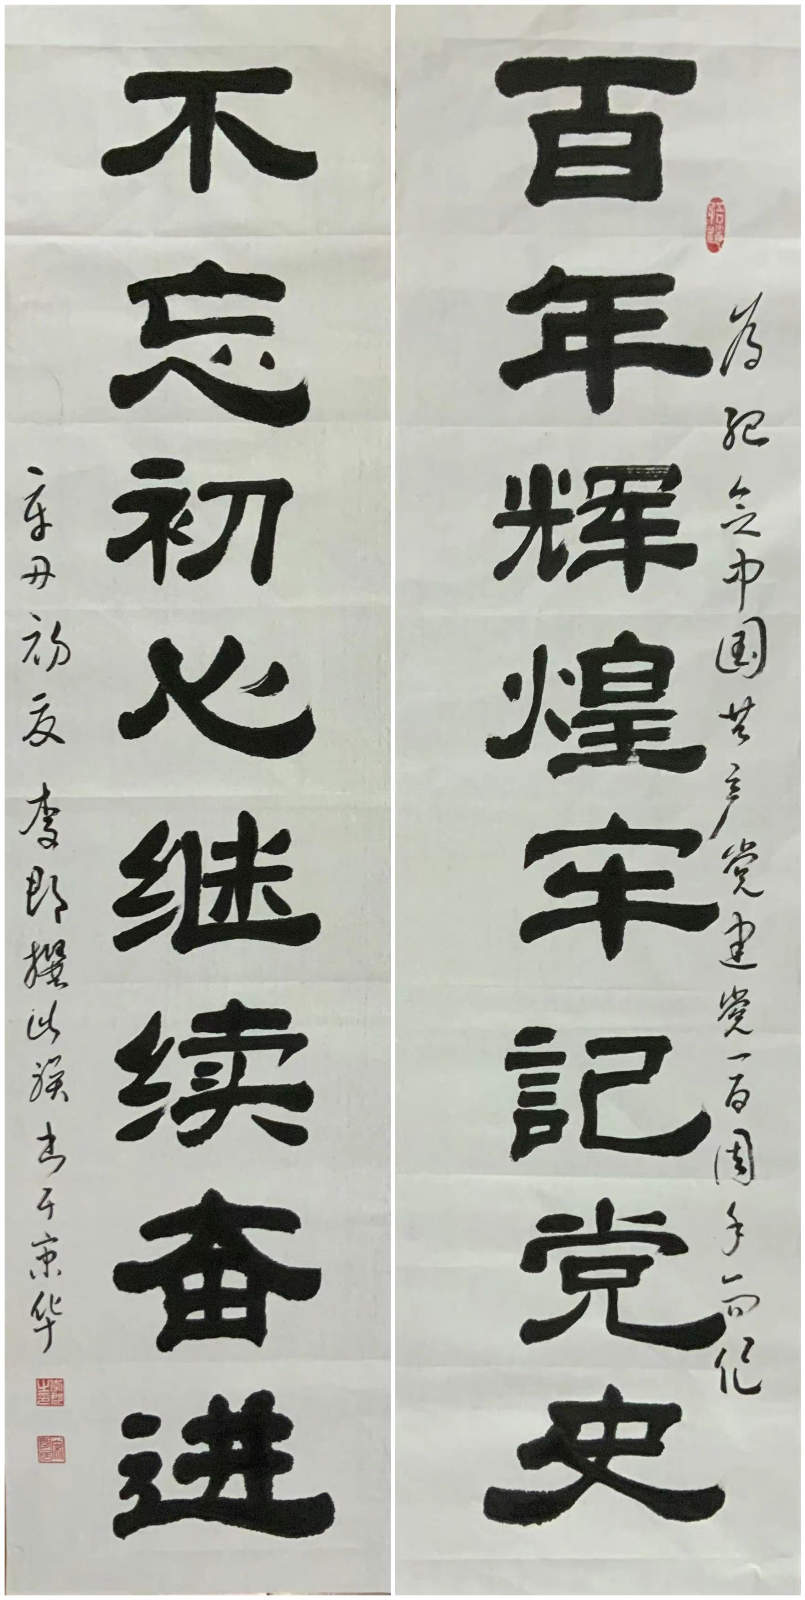 百年辉煌牢記党史
为纪念中国共产党建党一百周年而作
不忘初心继续奋进
辛丑初夏李郎撰此联书于京华